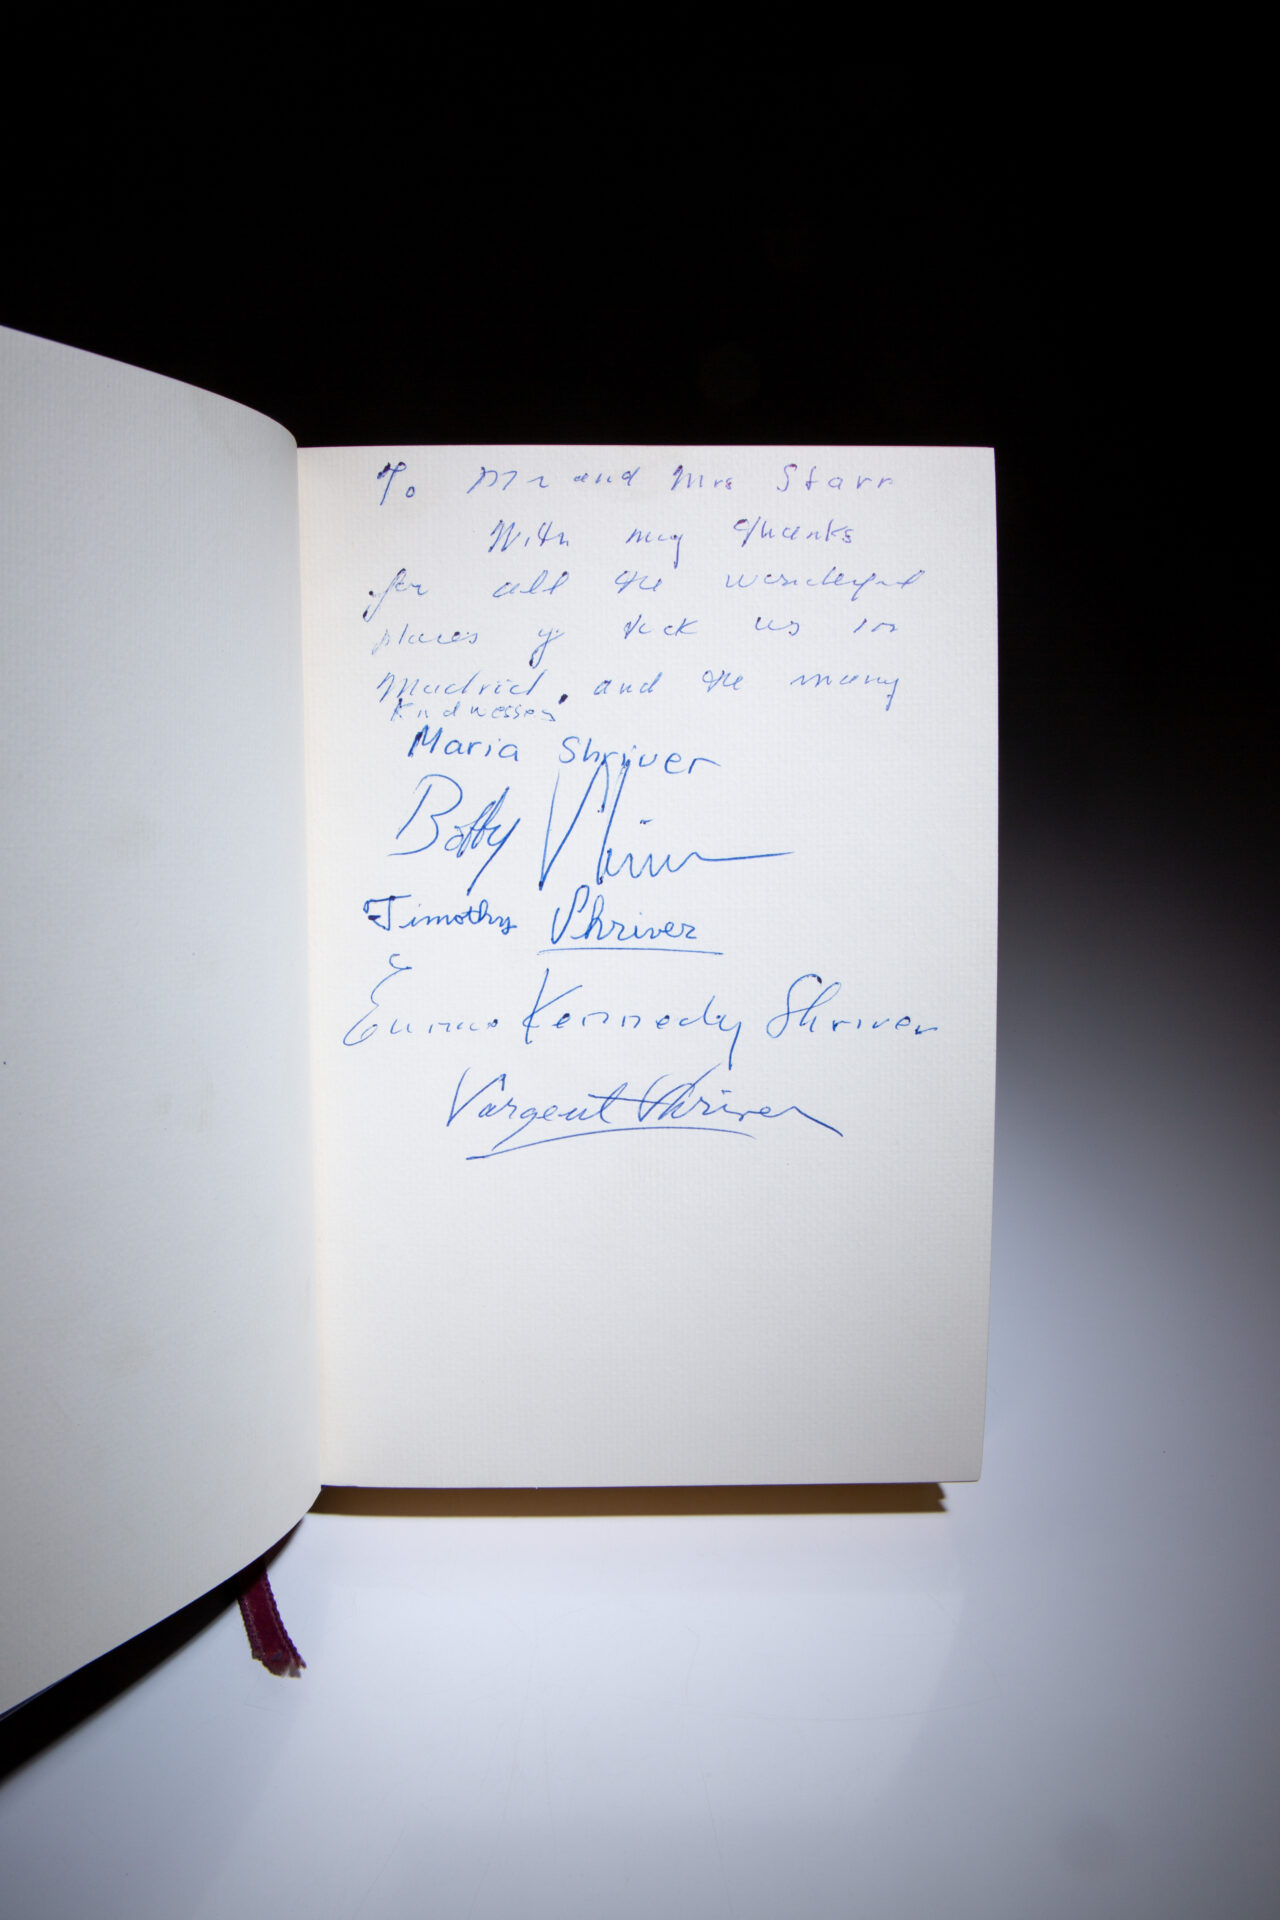 To Mr and Mrs Starr
With my thanks
for all the wonderful
places y took us in
Madrid, and the many
Kindnesses
Maria Shriver
Bobby Shriver
Timothy Shriver
Eunice Kennedy Shriver
Sargent Shriver